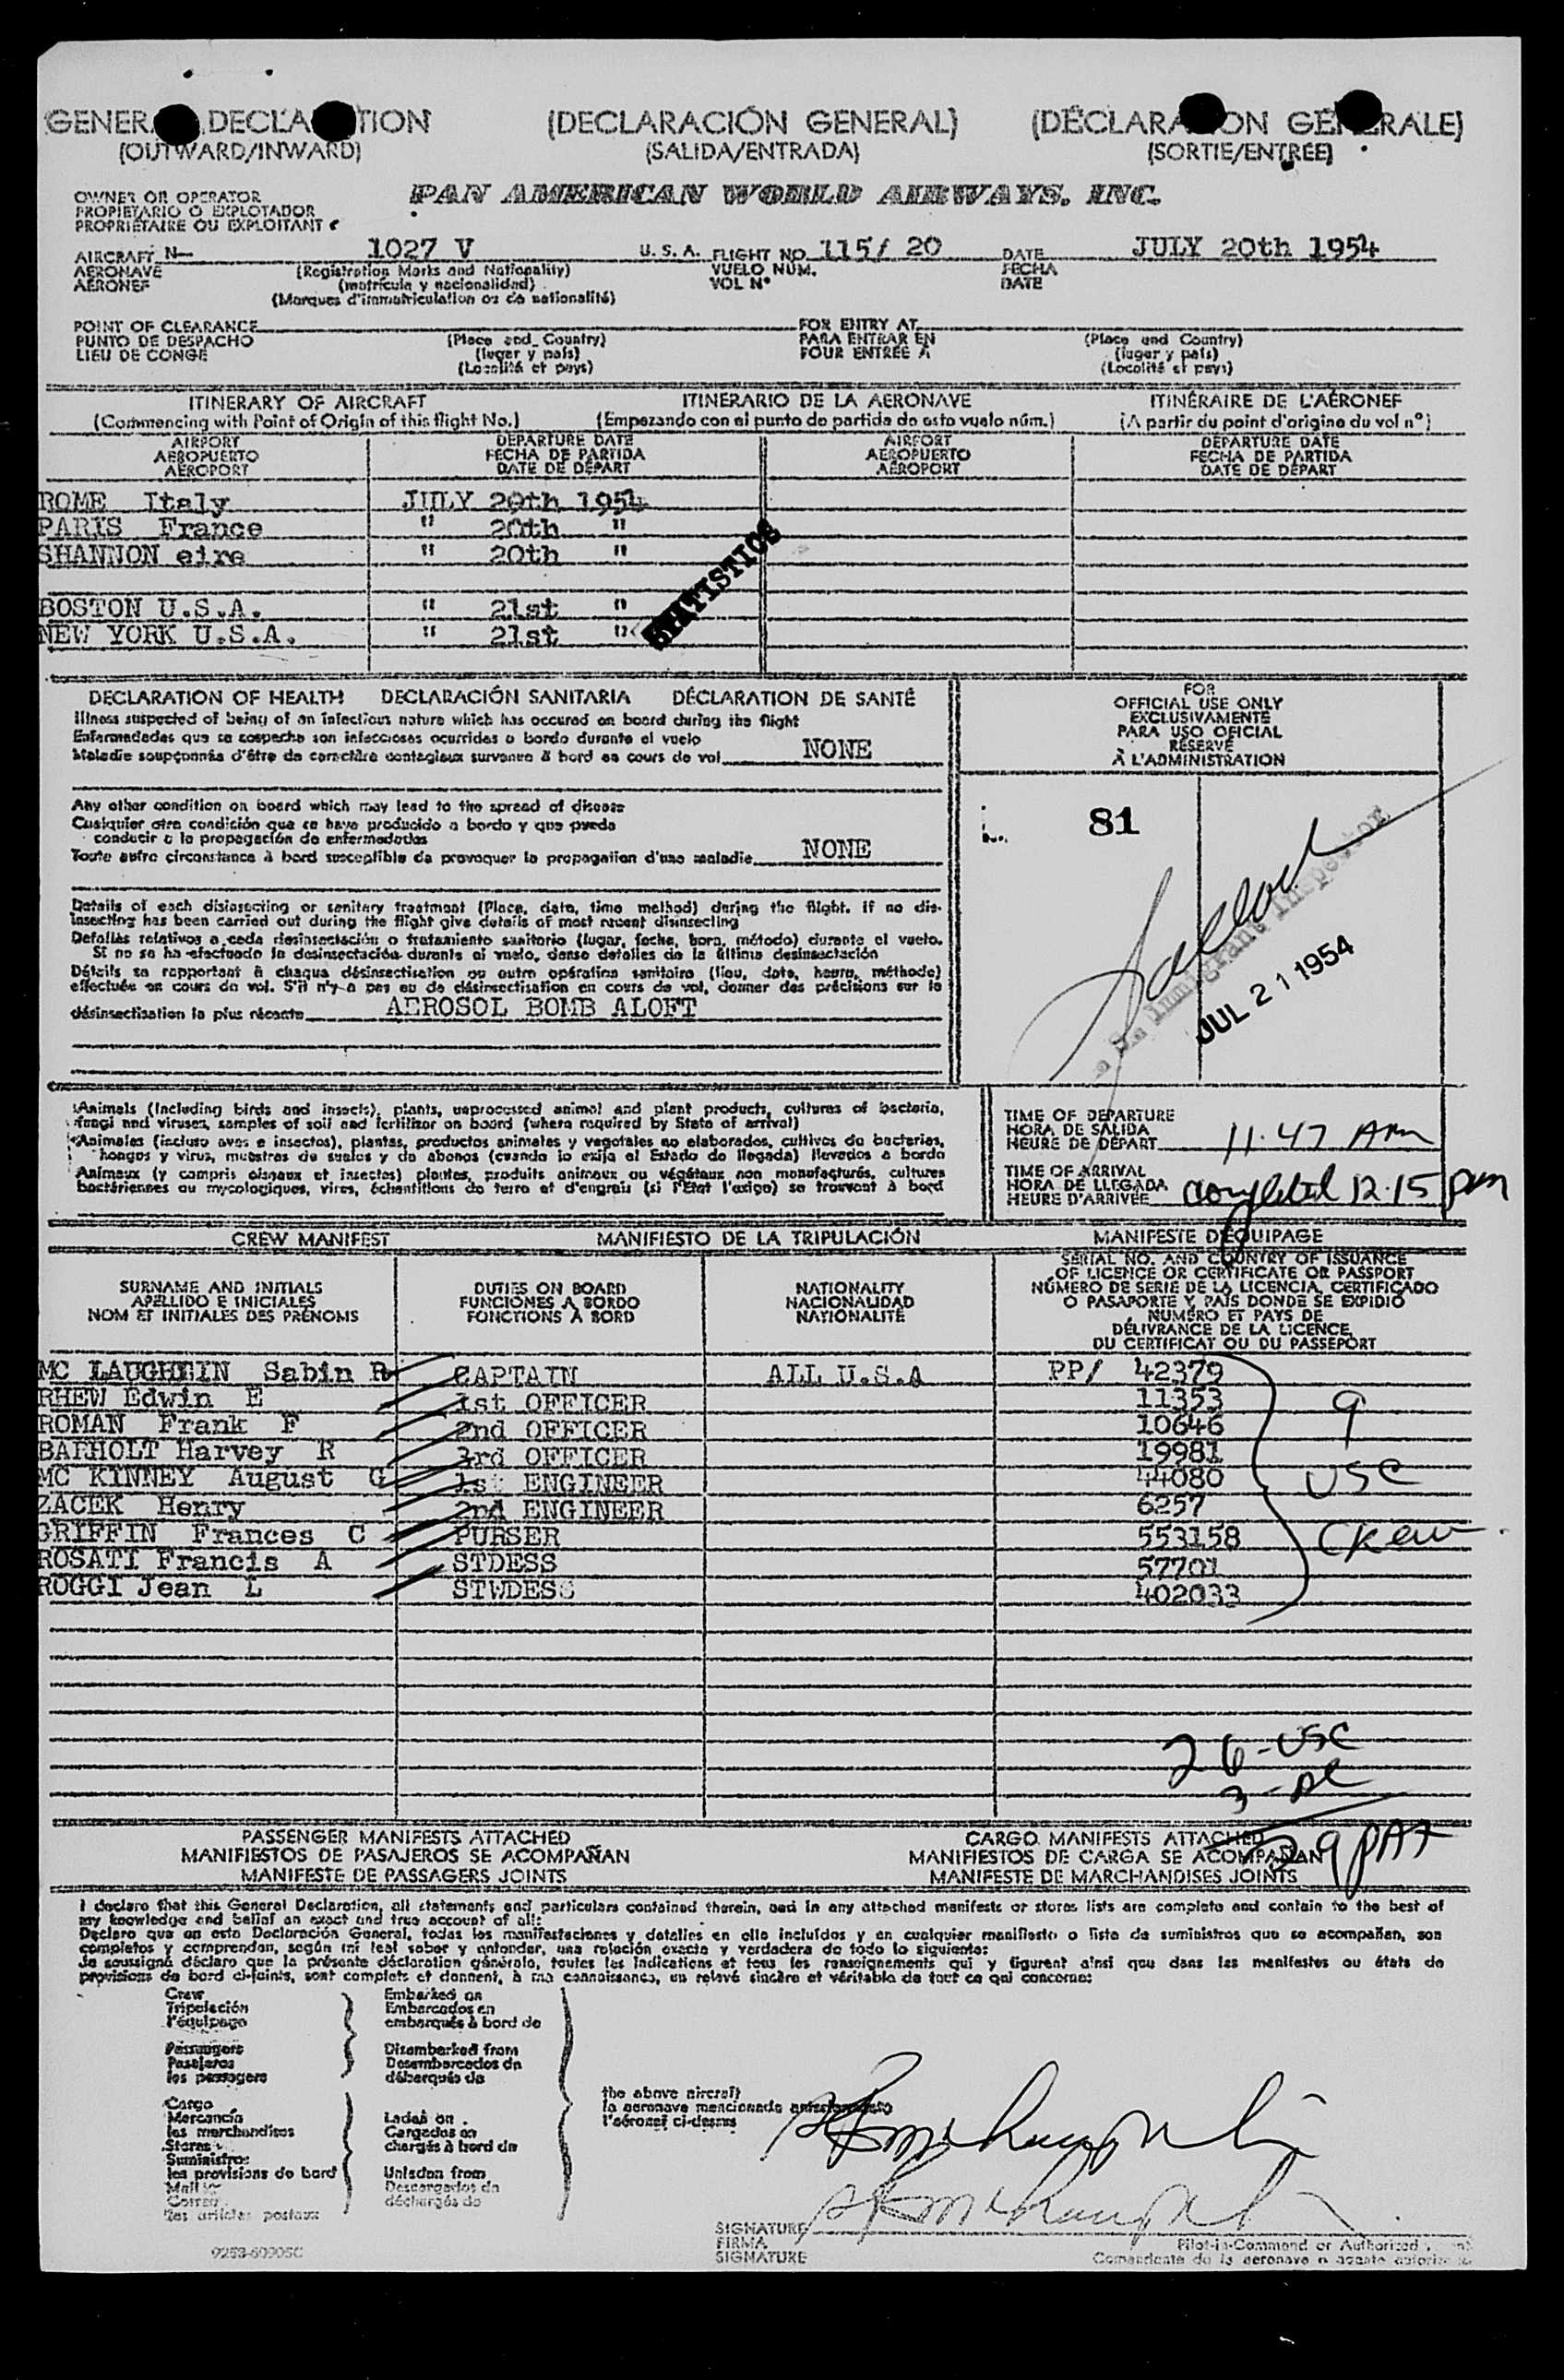 GENERAL DECLARATION (DECLARACIÓN GENERAL) (DÉCLARATION GÉNÉRALE)
(OUTWARD/INWARD) (SALIDA/ENTRADA) (SORTIE/ENTRÉE)
OWNER OR OPERATOR PAN AMERICAN WORLD AIRWAYS, INC.
PROPIETARIO O EXPLOTADOR
PROPRIÉTAIRE OU EXPLOITANT
AIRCRAFT N— 1027 V U. S. A. FLIGHT NO. 115/ 20 DATE JULY 20th 1954
AERONAVE (Registration Marks and Nationality) VUELO NÚM. FECHA
AÉRONEF (matrícula y nacionalidad) VOL Nº DATE
(Marques d'immatriculation ou de nationalité)
POINT OF CLEARANCE FOR ENTRY AT
PUNTO DE DESPACHO (Place and Country) PARA ENTRAR EN (Place and Country)
LIEU DE CONGÉ (lugar y país) POUR ENTRÉE À (lugar y país)
(Localité et pays) (Localité et pays)
ITINERARY OF AIRCRAFT ITINERARIO DE LA AERONAVE ITINÉRAIRE DE L'AÉRONEF
(Commencing with Point of Origin of this flight No.) (Empezando con el punto de partida de esto vuelo núm.) (A partir du point d'origine du vol nº)
AIRPORT DEPARTURE DATE AIRPORT DEPARTURE DATE
AEROPUERTO FECHA DE PARTIDA AEROPUERTO FECHA DE PARTIDA
AÉROPORT DATE DE DÉPART AÉROPORT DATE DE DÉPART
ROME Italy JULY 20th 1954
PARIS France " 20th "
SHANNON eire " 20th "
STATISTICS
BOSTON U.S.A. " 21st "
NEW YORK U.S.A. " 21st "
DECLARATION OF HEALTH DECLARACIÓN SANITARIA DÉCLARATION DE SANTÉ
Illness suspected of being of an infectious nature which has occured on board during the flight
Enfermedades que se sospecha son infecciosas ocurridas a bordo durante el vuelo
Maladie soupçonnée d'être de caractère contagieux survenue à bord en cours de vol NONE
Any other condition on board which may lead to the spread of disease
Cualquier otra condición que se haya producido a bordo y que pueda
conducir a la propagación de enfermedades
Toute autre circonstance à bord susceptible de provoquer la propagation d'une maladie NONE
Details of each disinsecting or sanitary treatment (Place, date, time method) during the flight. If no dis-
insecting has been carried out during the flight give details of most recent disinsecting
Detalles relativos a cada desinsectación o tratamiento sanitario (lugar, fecha, hora, método) durante el vuelo.
Si no se ha efectuado la desinsectación durante el vuelo, dense detalles de la última desinsectación
Détails se rapportant à chaque désinsectisation ou autre opération sanitaire (lieu, date, heure, méthode)
effectuée en cours de vol. S'il n'y a pas eu de désinsectisation en cours de vol, donner des précisions sur la
désinsectisation la plus récente AEROSOL BOMB ALOFT
FOR
OFFICIAL USE ONLY
EXCLUSIVAMENTE
PARA USO OFICIAL
RÉSERVÉ
À L'ADMINISTRATION
81
Immigrant Inspector
JUL 21 1954
Animals (Including birds and insects), plants, unprocessed animal and plant products, cultures of bacteria,
fungi and viruses, samples of soil and fertilizer on board (where required by State of arrival)
Animales (incluso aves e insectos), plantas, productos animales y vegetales no elaborados, cultivos de bacterias,
hongos y virus, muestras de suelos y de abonos (cuando lo exija el Estado de llegada) llevados a bordo
Animaux (y compris oiseaux et insectes) plantes, produits animaux ou végétaux non manufacturés, cultures
bactériennes ou mycologiques, virus, échantillons de terre et d'engrais (si l'État l'exige) se trouvant à bord
TIME OF DEPARTURE
HORA DE SALIDA
HEURE DE DÉPART 11.47 Am
TIME OF ARRIVAL
HORA DE LLEGADA
HEURE D'ARRIVÉE completed 12.15 pm
CREW MANIFEST MANIFIESTO DE LA TRIPULACIÓN MANIFESTE D'ÉQUIPAGE
SURNAME AND INITIALS DUTIES ON BOARD NATIONALITY SERIAL NO. AND COUNTRY OF ISSUANCE
APELLIDO E INICIALES FUNCIONES A BORDO NACIONALIDAD OF LICENCE OR CERTIFICATE OR PASSPORT
NOM ET INITIALES DES PRÉNOMS FONCTIONS À BORD NATIONALITÉ NÚMERO DE SERIE DE LA LICENCIA, CERTIFICADO
O PASAPORTE Y PAÍS DONDE SE EXPIDIÓ
NUMÉRO ET PAYS DE
DÉLIVRANCE DE LA LICENCE,
DU CERTIFICAT OU DU PASSEPORT
MC LAUGHLIN Sabin R CAPTAIN ALL U.S.A PP/ 42379
RHEW Edwin E 1st OFFICER 11353
ROMAN Frank F 2nd OFFICER 10646
BATHOLT Harvey R 3rd OFFICER 19981
MC KINNEY August G 1st ENGINEER 44080
ZACEK Henry 2nd ENGINEER 6257
GRIFFIN Frances C PURSER 553158
ROSATI Francis A STDESS 57701
ROGGI Jean L STWDESS 402033
9
USC
Crew
26-USC
3-
29 PAX
PASSENGER MANIFESTS ATTACHED CARGO MANIFESTS ATTACHED
MANIFIESTOS DE PASAJEROS SE ACOMPAÑAN MANIFIESTOS DE CARGA SE ACOMPAÑAN
MANIFESTE DE PASSAGERS JOINTS MANIFESTE DE MARCHANDISES JOINTS
I declare that this General Declaration, all statements and particulars contained therein, and in any attached manifests or stores lists are complete and contain to the best of
my knowledge and belief an exact and true account of all:
Declaro que en esta Declaración General, todas las manifestaciones y detalles en ella incluídos y en cualquier manifiesto o lista de suministros que se acompañan, son
completos y comprenden, según mi leal saber y entender, una relación exacta y verdadera de todo lo siguiente:
Je soussigné déclare que la présente déclaration générale, toutes les indications et tous les renseignements qui y figurent ainsi que dans les manifestes ou états de
provisions de bord ci-joints, sont complets et donnent, à ma connaissance, un relevé sincère et véritable de tout ce qui concerne:
Crew Embarked on
Tripulación Embarcados en
l'équipage embarqués à bord de
Passengers Disembarked from
Pasajeros Desembarcados de
les passagers débarqués de
Cargo
Mercancía Laden on
les marchandises Cargados en
Stores chargés à bord de
Suministros
les provisions de bord Unladen from
Mail Descargados de
Correo déchargés de
les articles postaux
the above aircraft
la aeronave mencionada anteriormente
l'aéronef ci-dessus
SIGNATURE
FIRMA
SIGNATURE
Pilot-in-Command or Authorized
Comandante de la aeronave o agente autorizado
9253-60905C